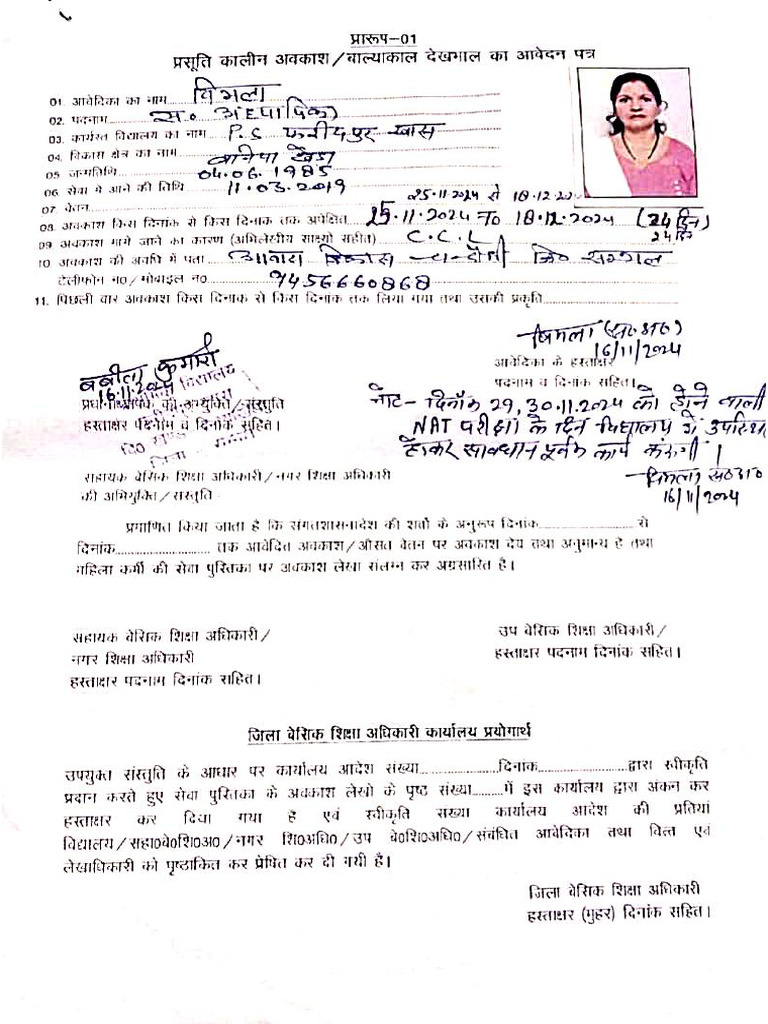 प्रारूप-01
प्रसूति कालीन अवकाश/बाल्याकाल देखभाल का आवेदन पत्र
01. आवेदिका का नाम विमला
02. पदनाम स० अध्यापिका
03. कार्यरत विद्यालय का नाम P.S फरीदपुर खास
04. विकास क्षेत्र का नाम बनिया खेड़ा
05 जन्मतिथि 04.06.1985
06. सेवा में आने की तिथि 11.03.2019
07. वेतन 25.11.2024 से 18.12.2024
08. अवकाश किस दिनांक से किस दिनांक तक अपेक्षित 25.11.2024 To 18.12.2024 (24 दिन)
24 दिन
09 अवकाश मांगे जाने का कारण (अभिलेखीय साक्ष्यो सहीत) C.C.L
10 अवकाश की अवधि में पता आवास विकास चन्दौसी जि० सम्भल
टेलीफोन न0/मोबाइल न0 9456660868
11. पिछली वार अवकाश किस दिनांक से किस दिनांक तक लिया गया तथा उसकी प्रकृति
विमला (स०अ०)
16/11/2024
बबीता कुमारी
16.11.2024
आवेदिका के हस्ताक्षर
पदनाम व दिनांक सहित।
प्रधानाध्यापक की आयुक्ति/संस्तुति
हस्ताक्षर पदनाम व दिनांक सहित।
नोट- दिनाँक 29,30.11.2024 को होने वाली
NAT परीक्षा के दिन विद्यालय में उपस्थित
होकर सावधान पूर्वक कार्य करूंगी।
विमला स०अ०
16/11/2024
सहायक बेसिक शिक्षा अधिकारी/नगर शिक्षा अधिकारी
की अभियुक्ति/सस्तुति
प्रमाणित किया जाता है कि संगतशासनादेश की शर्तो के अनुरूप दिनांक से
दिनांक तक आवेदित अवकाश/औसत वेतन पर अवकाश देय तथा अनुमान्य है तथा
महिला कर्मी की सेवा पुस्तिका पर अवकाश लेखा संलग्न कर अग्रसारित है।
सहायक वेसिक शिक्षा अधिकारी/
नगर शिक्षा अधिकारी
हस्ताक्षर पदनाम दिनांक सहित।
उप वेसिक शिक्षा अधिकारी/
हस्ताक्षर पदनाम दिनांक सहित।
जिला वेसिक शिक्षा अधिकारी कार्यालय प्रयोगार्थ
उपयुक्त संस्तुति के आधार पर कार्यालय आदेश संख्या दिनांक द्वारा स्वीकृति
प्रदान करते हुए सेवा पुस्तिका के अवकाश लेखो के पृष्ठ संख्या में इस कार्यालय द्वारा अंकन कर
हस्ताक्षर कर दिया गया है एवं स्वीकृति सख्या कार्यालय आदेश की प्रतियां
विद्यालय/सहा0बे0शि0अ0/नगर शि0अधि0/उप बे0शि0अधि0/संबंधित आवेदिका तथा वित्त एवं
लेखाधिकारी को पृष्ठाकित कर प्रेषित कर दी गयी है।
जिला वेसिक शिक्षा अधिकारी
हस्ताक्षर (मुहर) दिनांक सहित।